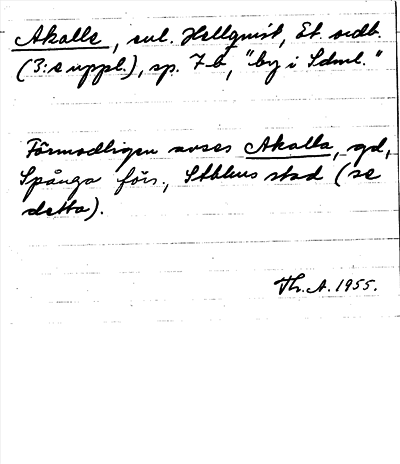 Akalle, enl. Hellquist, Et. ordb.
(3:e uppl.), sp. 7 b, "by i Sdml."
Förmodligen avses Akalla, gd,
Spånga förs., Sthlms stad (se
detta).
Th. A. 1955.